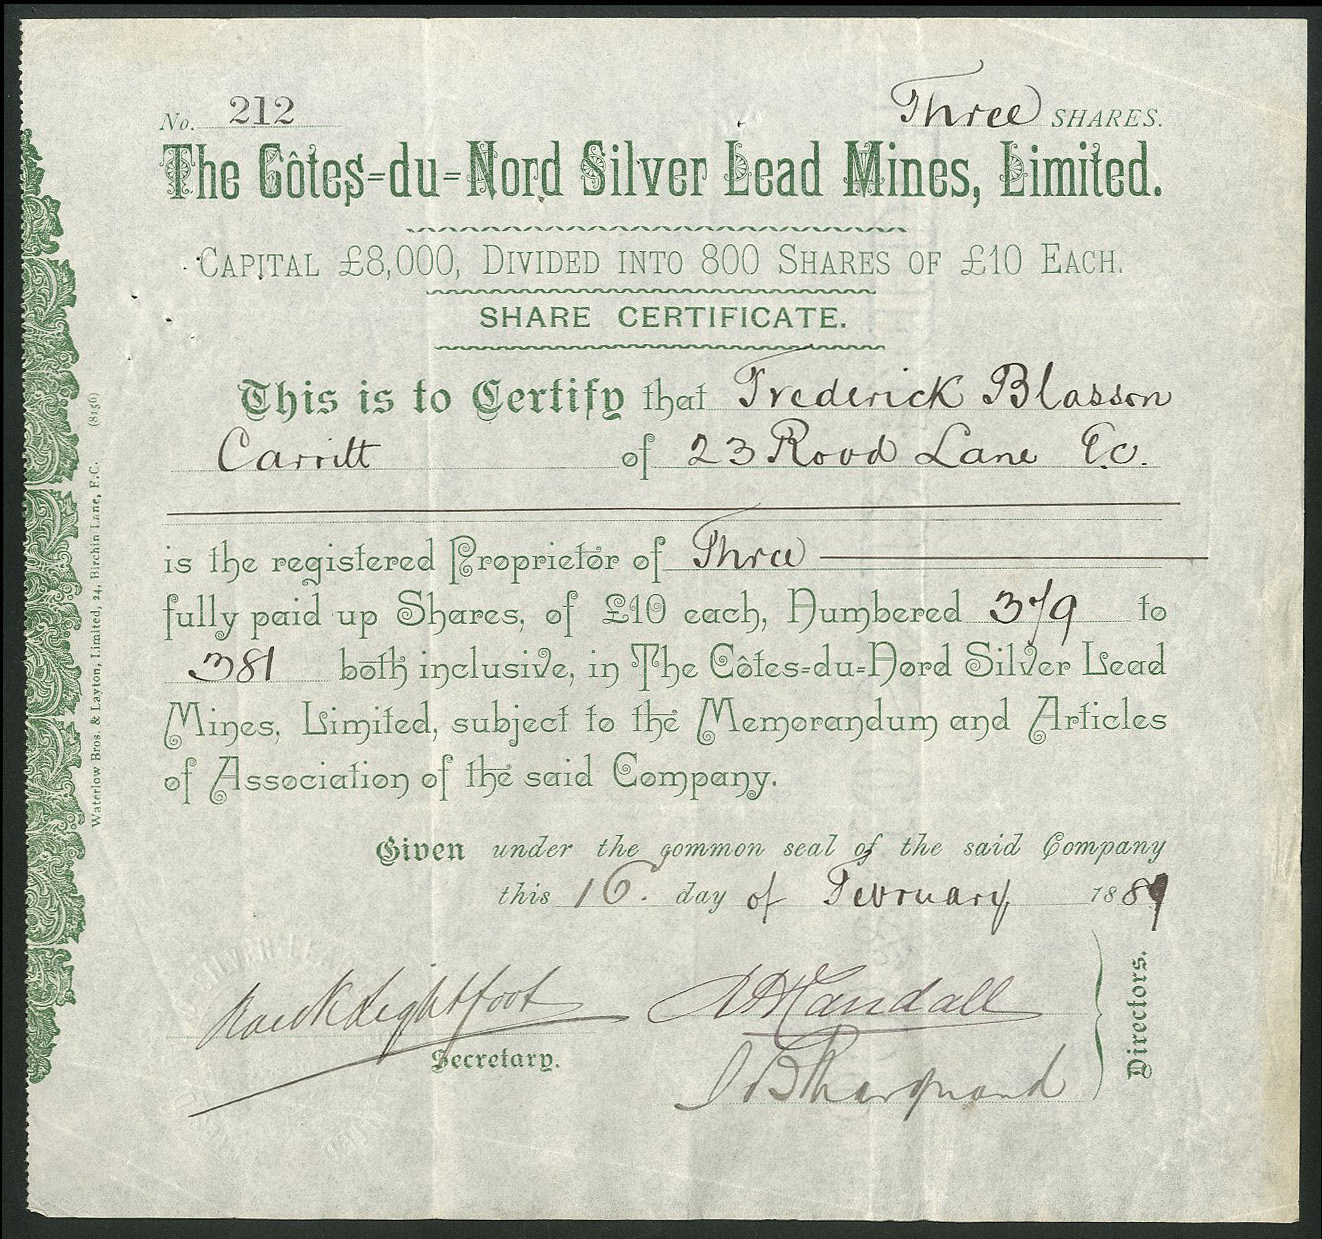 No. 212 Three SHARES.
The Côtes-du-Nord Silver Lead Mines, Limited.
CAPITAL £8,000, DIVIDED INTO 800 SHARES OF £10 EACH.
SHARE CERTIFICATE.
This is to Certify that Frederick Blasson
Carritt of 23 Rood Lane E.C.
is the registered Proprietor of Three
fully paid up Shares, of £10 each, Numbered 379 to
381 both inclusive, in The Côtes-du-Nord Silver Lead
Mines, Limited, subject to the Memorandum and Articles
of Association of the said Company.
Given under the common seal of the said Company
this 16. day of February 1889
Lightfoot
Secretary.
Randall
Directors.
Waterlow Bros. & Layton, Limited, 24, Birchin Lane, E.C. (8156)